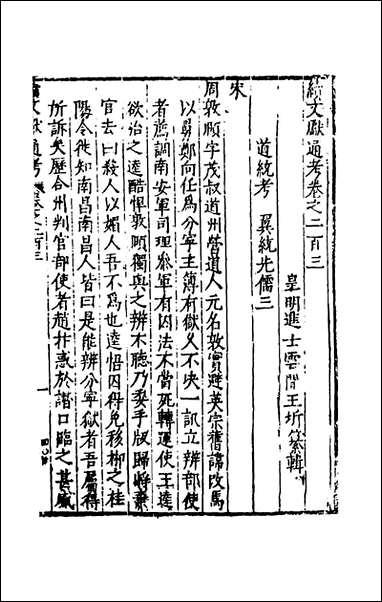 續文獻通考卷之二百三
皇明進士雲間王圻纂輯
道統考 翼統先儒三
宋
周敦頤字茂叔道州營道人元名敦實避英宗舊諱改焉
以舅鄭向任爲分寧主簿有獄久不決一訊立辨部使
者薦調南安軍司理叅軍有囚法不當死轉運使王逵
欲治之逵酷悍敦頤獨與之辨不聽乃委手版歸將棄
官去曰殺人以媚人吾不爲也逵悟囚得免移郴之桂
陽令徙知南昌南昌人皆曰是能辨分寧獄者吾屬得
所訴矣歷合州判官部使者趙抃惑於譖口臨之甚威
續文獻通考 卷之二百三
一